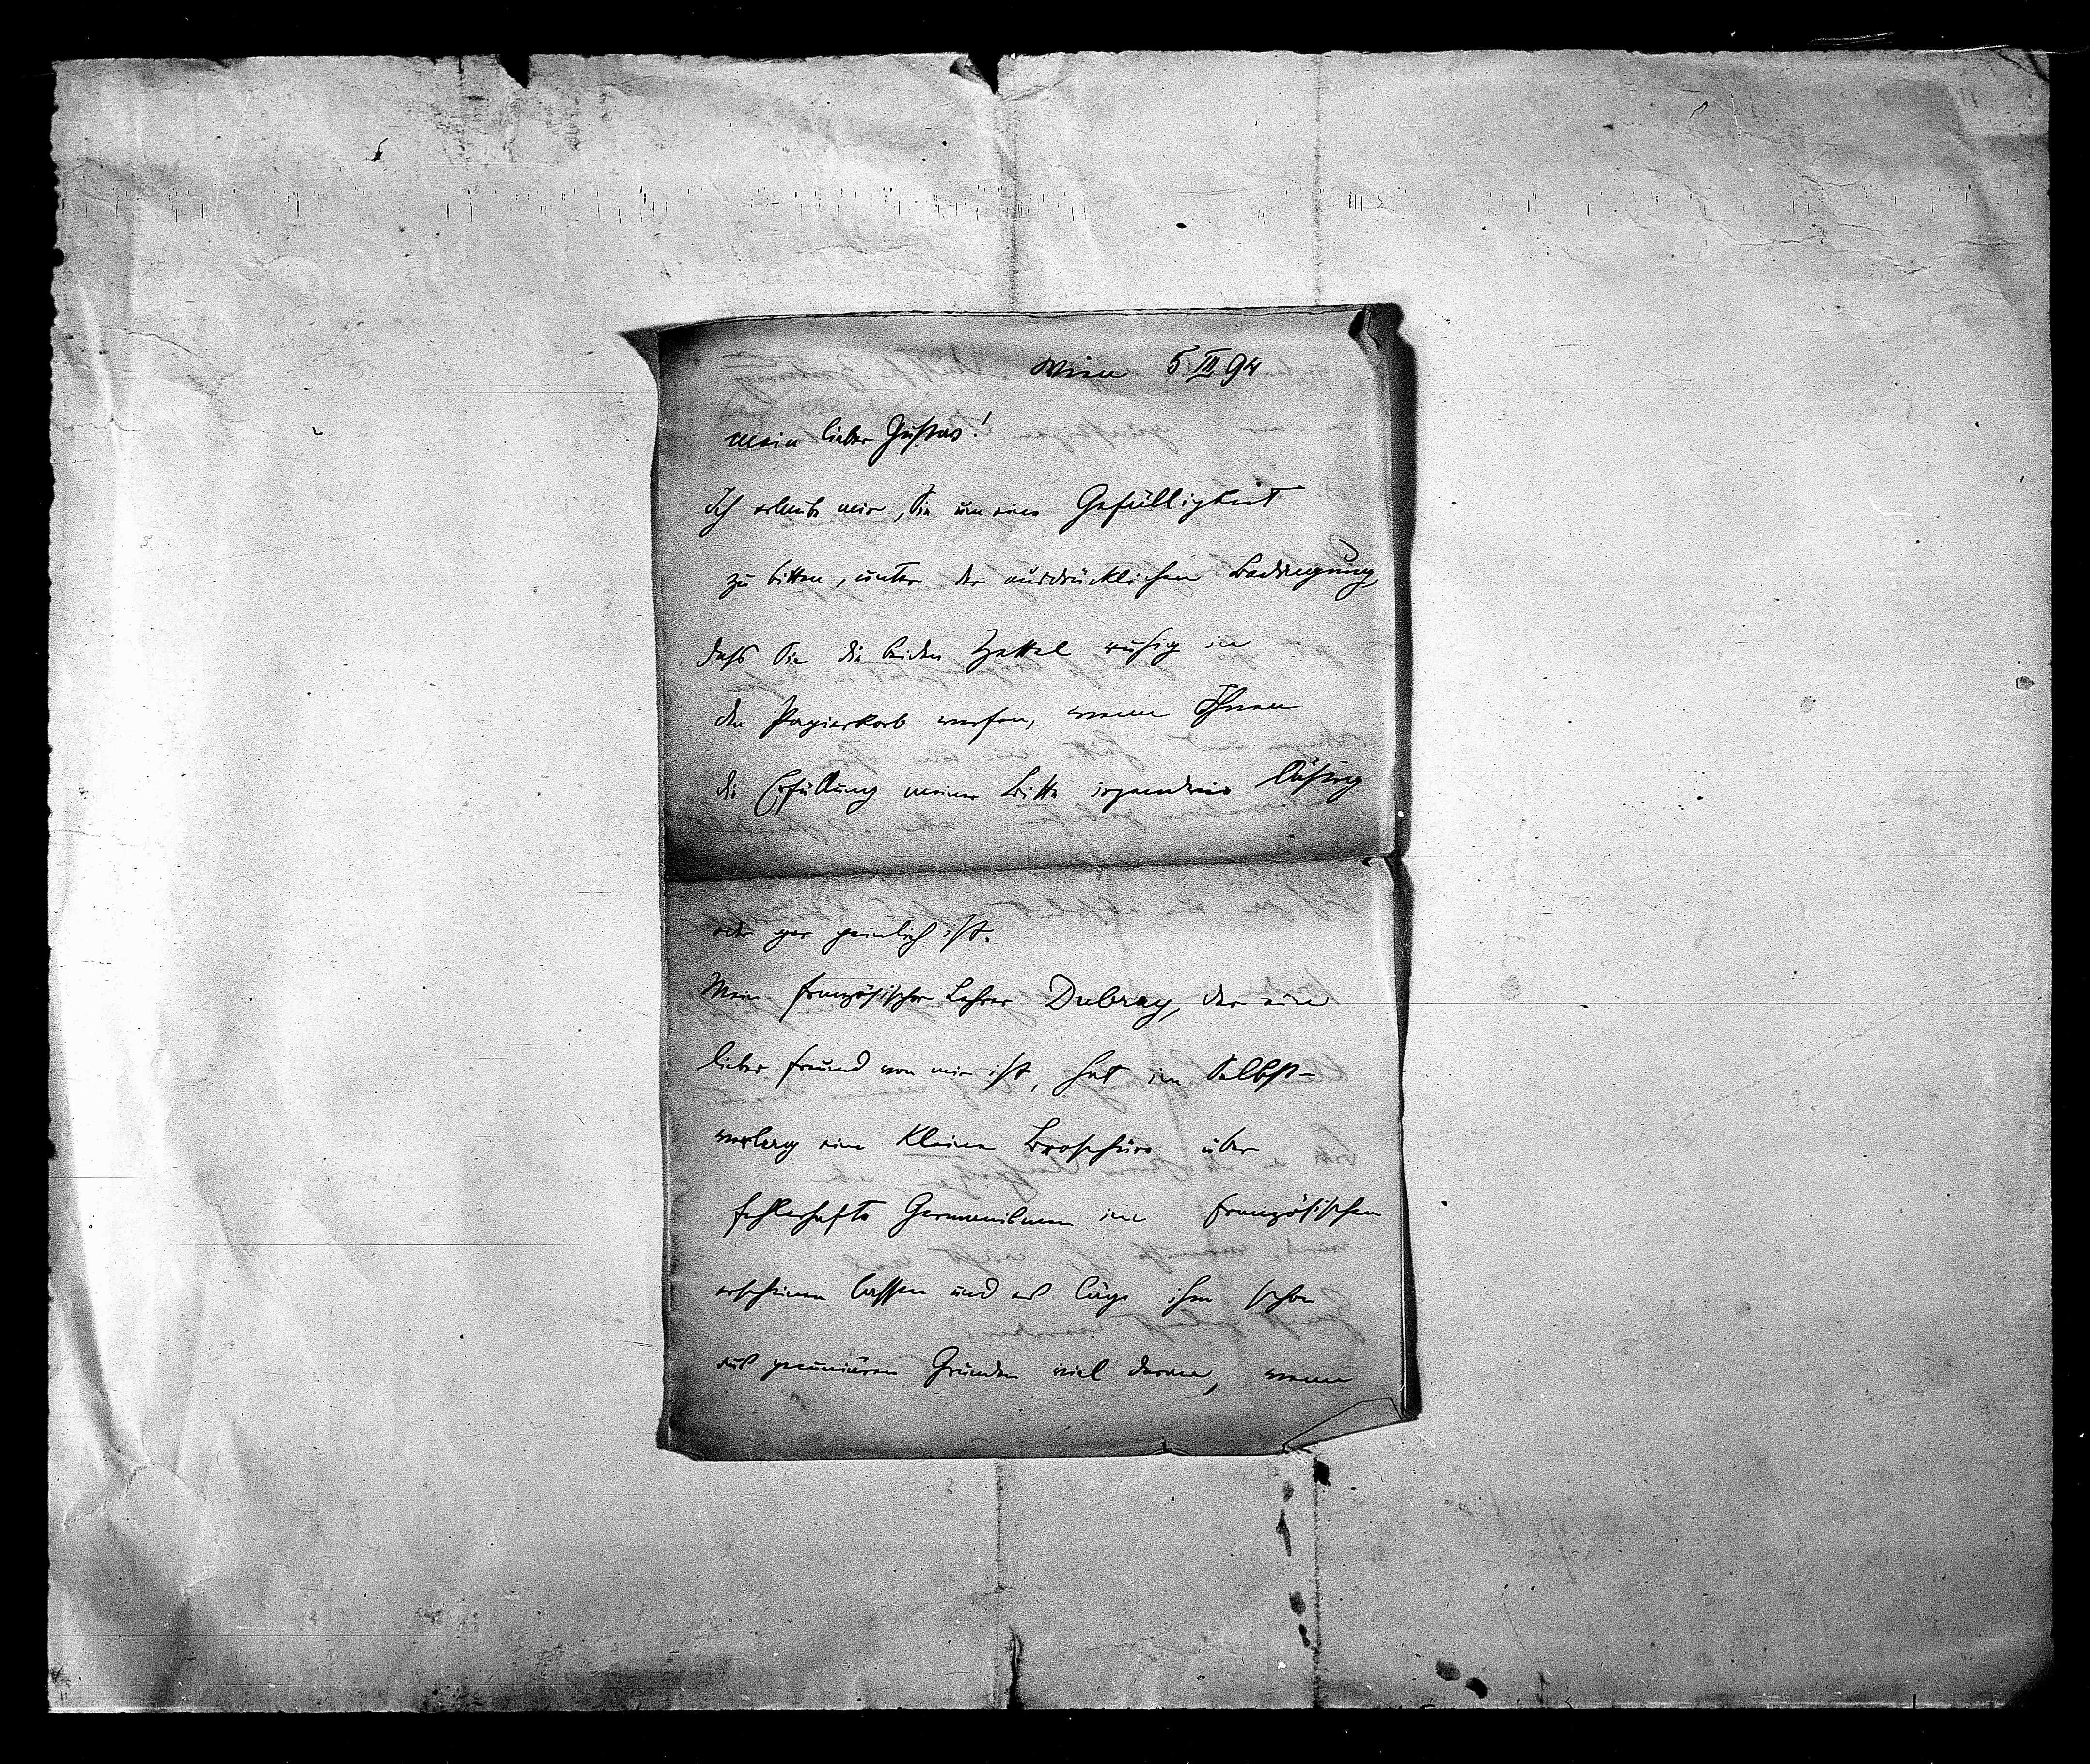 Wien 5 III 94
mein lieber Gustav!
Ich erlaube mir, Sie um eine Gefälligkeit
zu bitten, unter der ausdrücklichen Bedingung,
dass Sie die beiden Zettel ruhig in
den Papierkorb werfen, wenn Ihnen
die Erfüllung meiner Bitte irgendwie lästig
oder gar peinlich ist.
Mein französischer Lehrer Dubray, der ein
lieber Freund von mir ist, hat im Selbst-
verlag eine kleine Broschüre über
fehlerhafte Germanismen im französischen
erscheinen lassen und es läge ihm schon
aus pecuniären Gründen viel daran, wenn